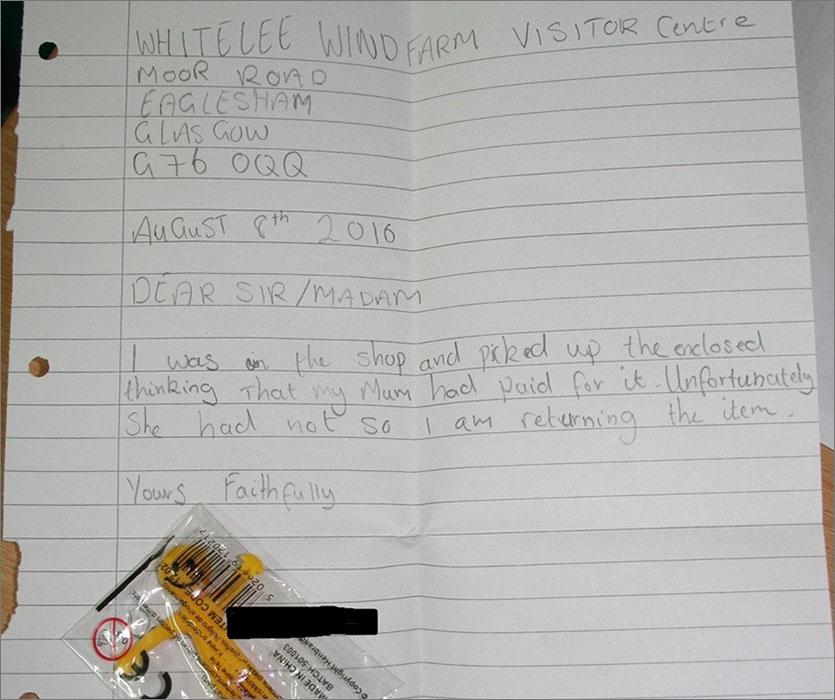 WHITELEE WINDFARM VISITOR Centre
MOOR ROAD
EAGLESHAM
GLASGOW
G76 0QQ
AUGUST 8th 2016
DEAR SIR/MADAM
I was in the shop and picked up the enclosed
thinking That my Mum had paid for it. Unfortunately
She had not so I am returning the item.
Yours Faithfully
ITEM CODE
MADE IN CHINA
BATCH:501003
© copyright Henbrandt
0-3